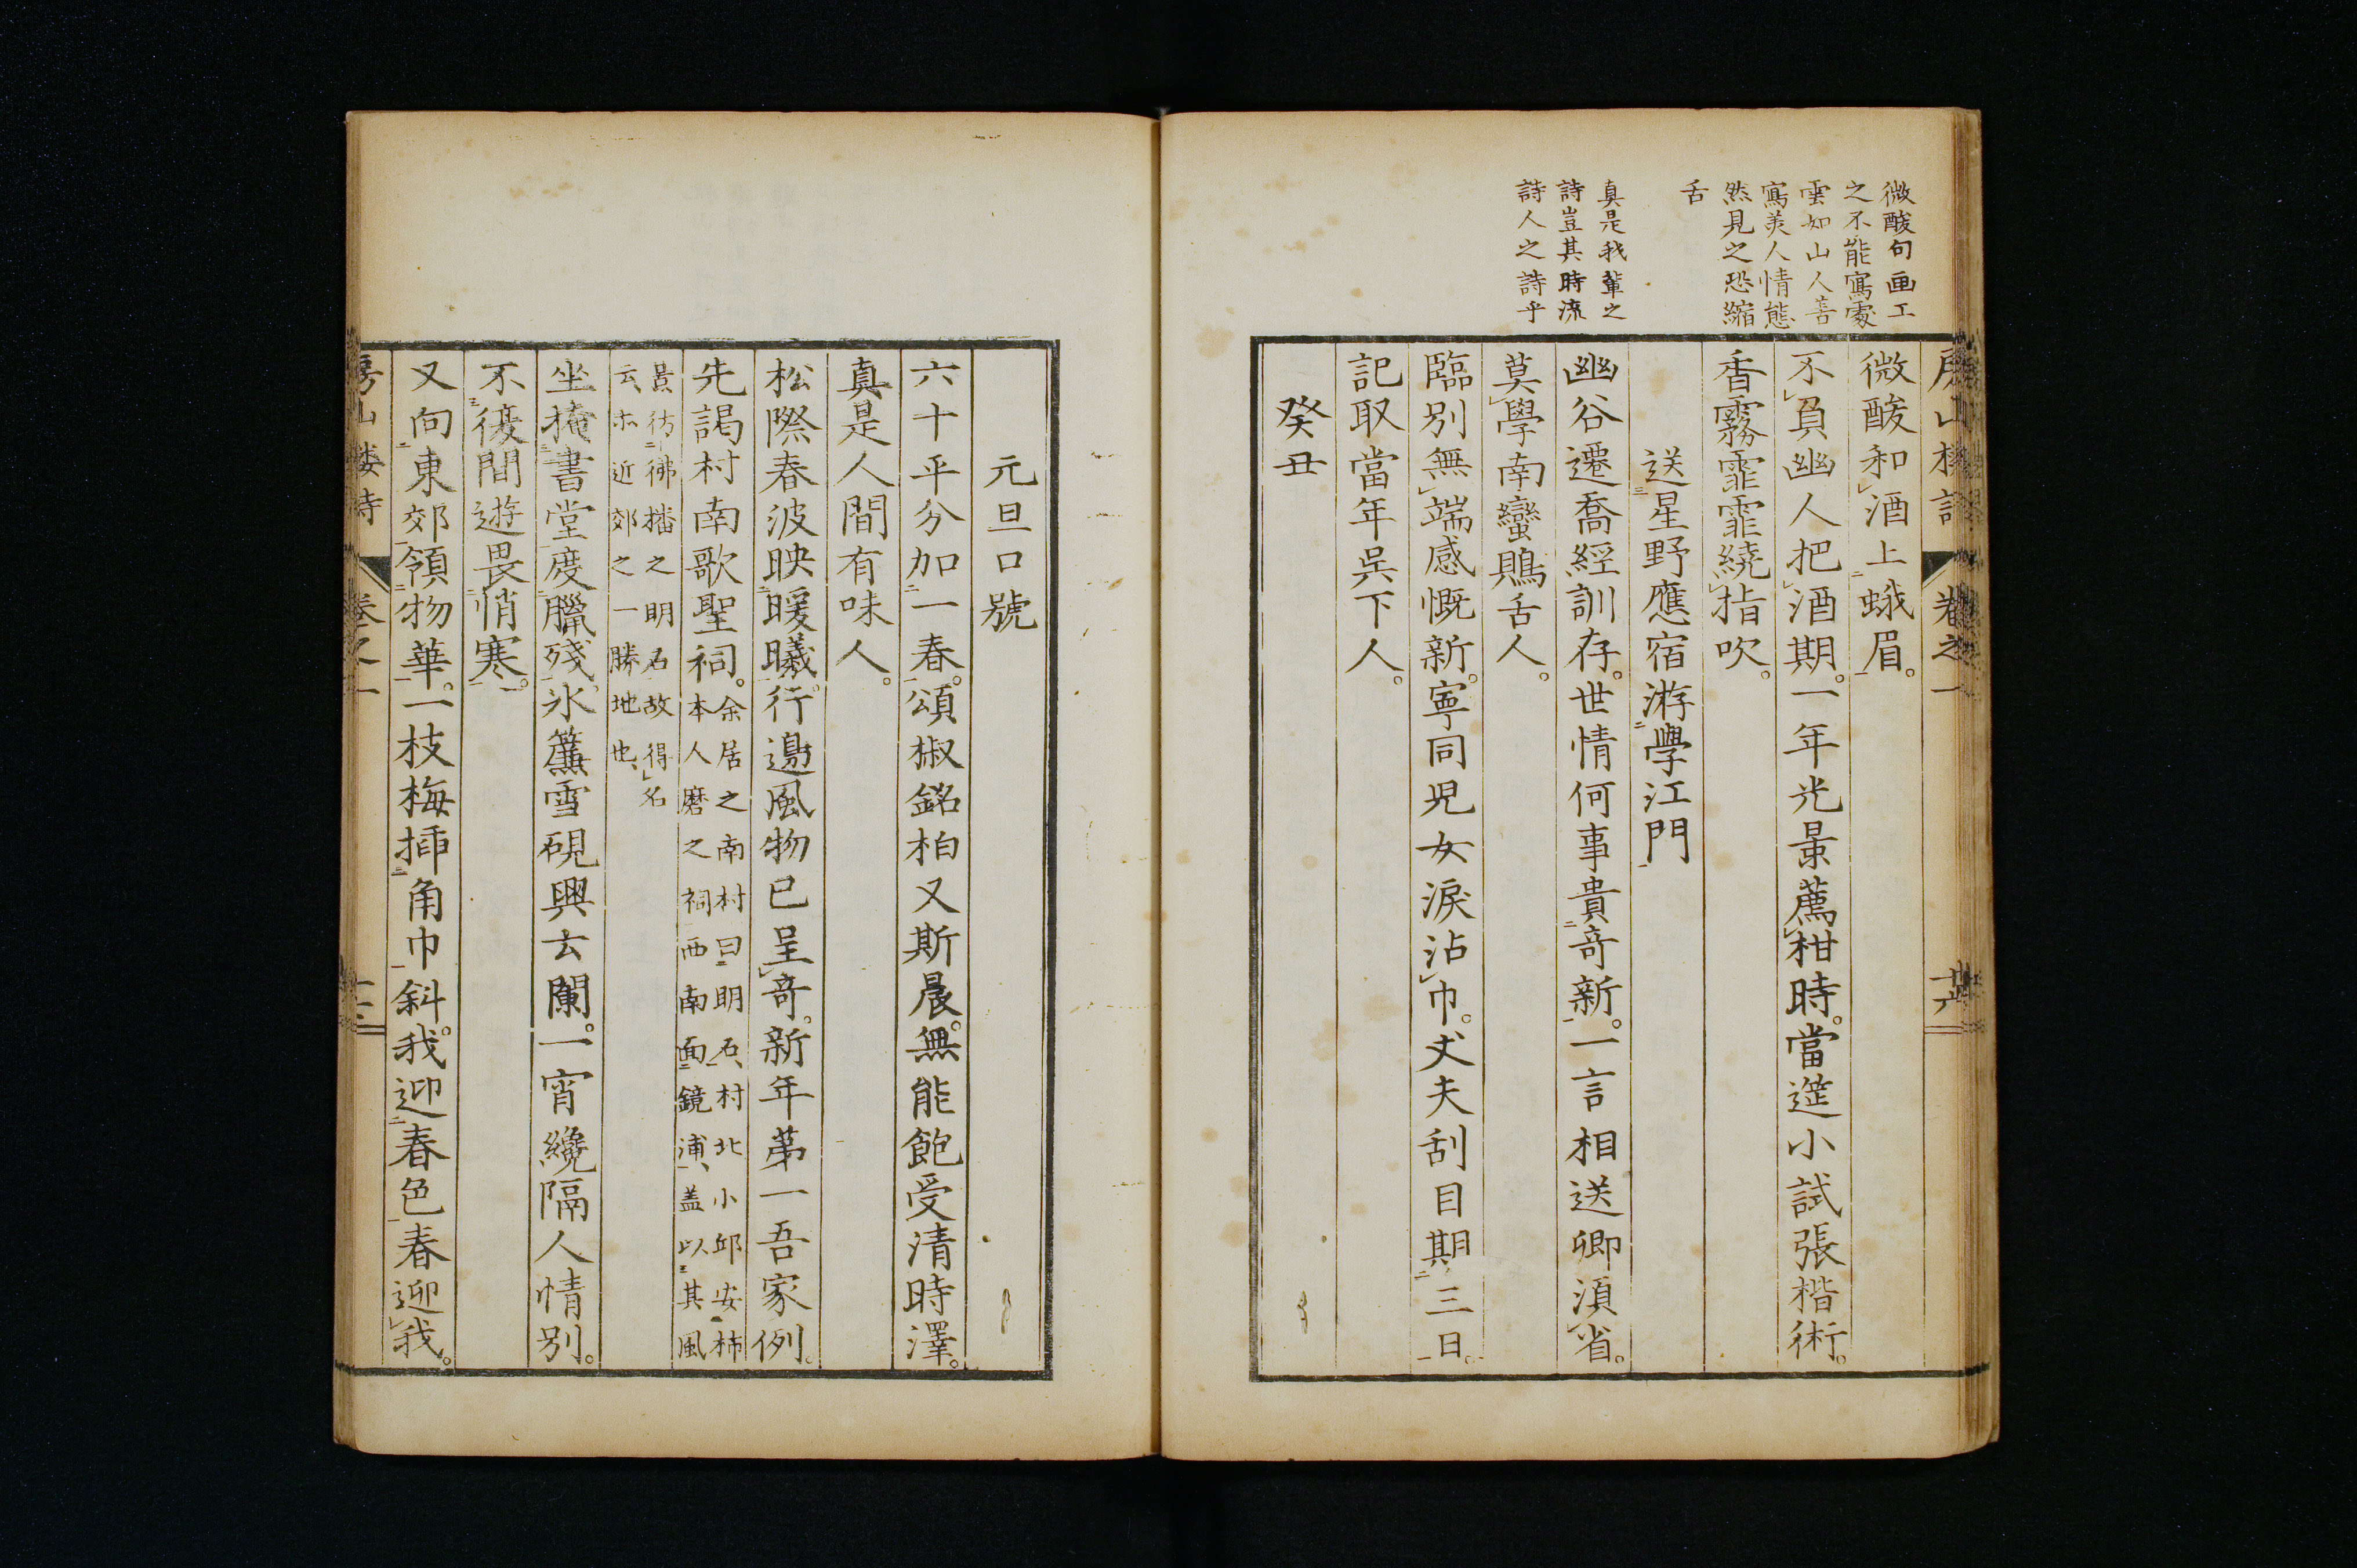 微酸句画工
之不能寫處
雲如山人善
寫美人情態
然見之恐縮
舌
真是我輩之
詩豈其時流
詩人之詩乎
房山樓詩 卷之一
微酸和酒上蛾眉。
不負幽人把酒期。一年光景薦柑時。當筵小試張楷術。
香霧霏霏繞指吹。
送星野應宿游學江門
幽谷遷喬經訓存。世情何事貴奇新。一言相送卿須省。
莫學南蠻鴃舌人。
臨別無端感慨新。寧同児女淚沾巾。丈夫刮目期三日。
記取當年吳下人。
癸丑
元旦口號
六十平分加一春。頌椒銘柏又斯晨。無能飽受清時澤。
真是人間有味人。
松際春波映暖曦。行邊風物已呈奇。新年第一吾家例。
先謁村南歌聖祠。余居之南村曰明石、村北小邱安柿
本人麿之祠西南面鏡浦、盖以其風
景彷彿播之明石故得名
云、亦近郊之一勝地也、
坐掩書堂度臘殘。氷簾雪硯興云闌。一宵纔隔人情別。
不復間遊畏悄寒。
又向東郊領物華。一枝梅挿角巾斜。我迎春色春迎我。
房山樓詩 卷之一